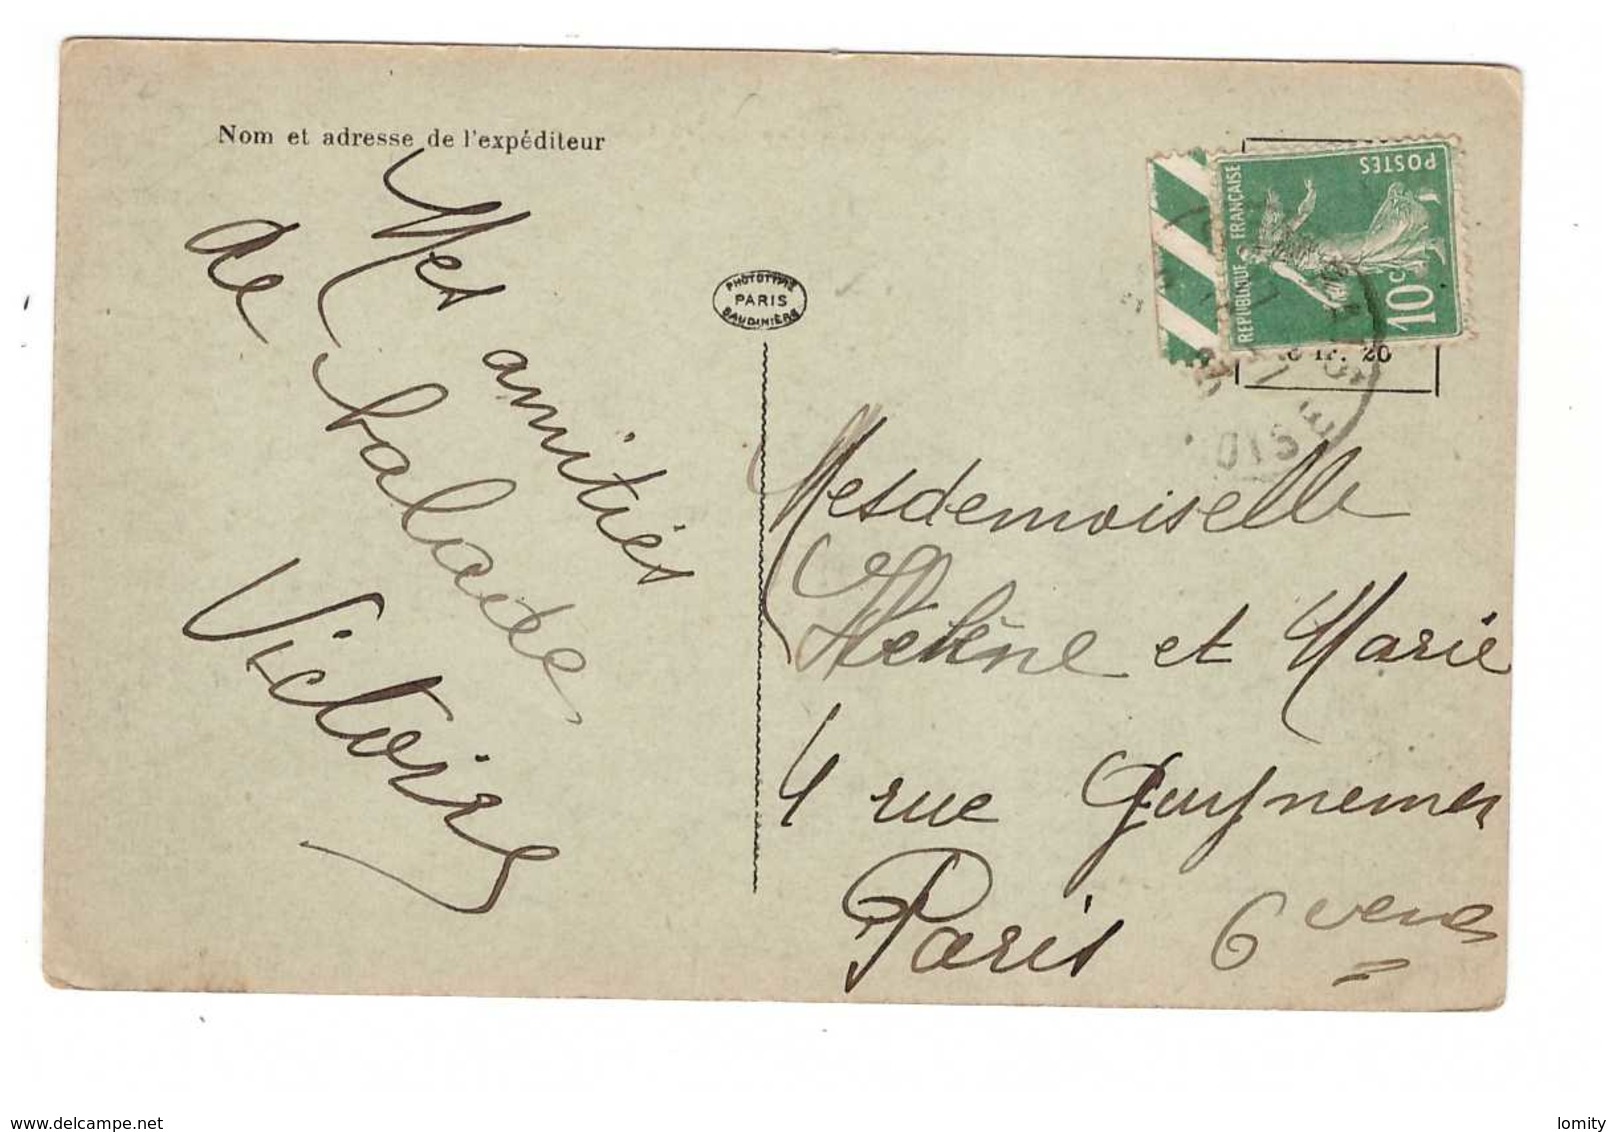 Nom et adresse de l'expéditeur
Mes amitiés
de balade
Victoire
PHOTOTYPIE
PARIS
BAUDINIÈRE
POSTES
REPUBLIQUE FRANÇAISE
10c
fr. 20
OISE
Mesdemoiselle
Helène et Marie
4 rue Guynemer
Paris 6
www.delcampe.net
lomity